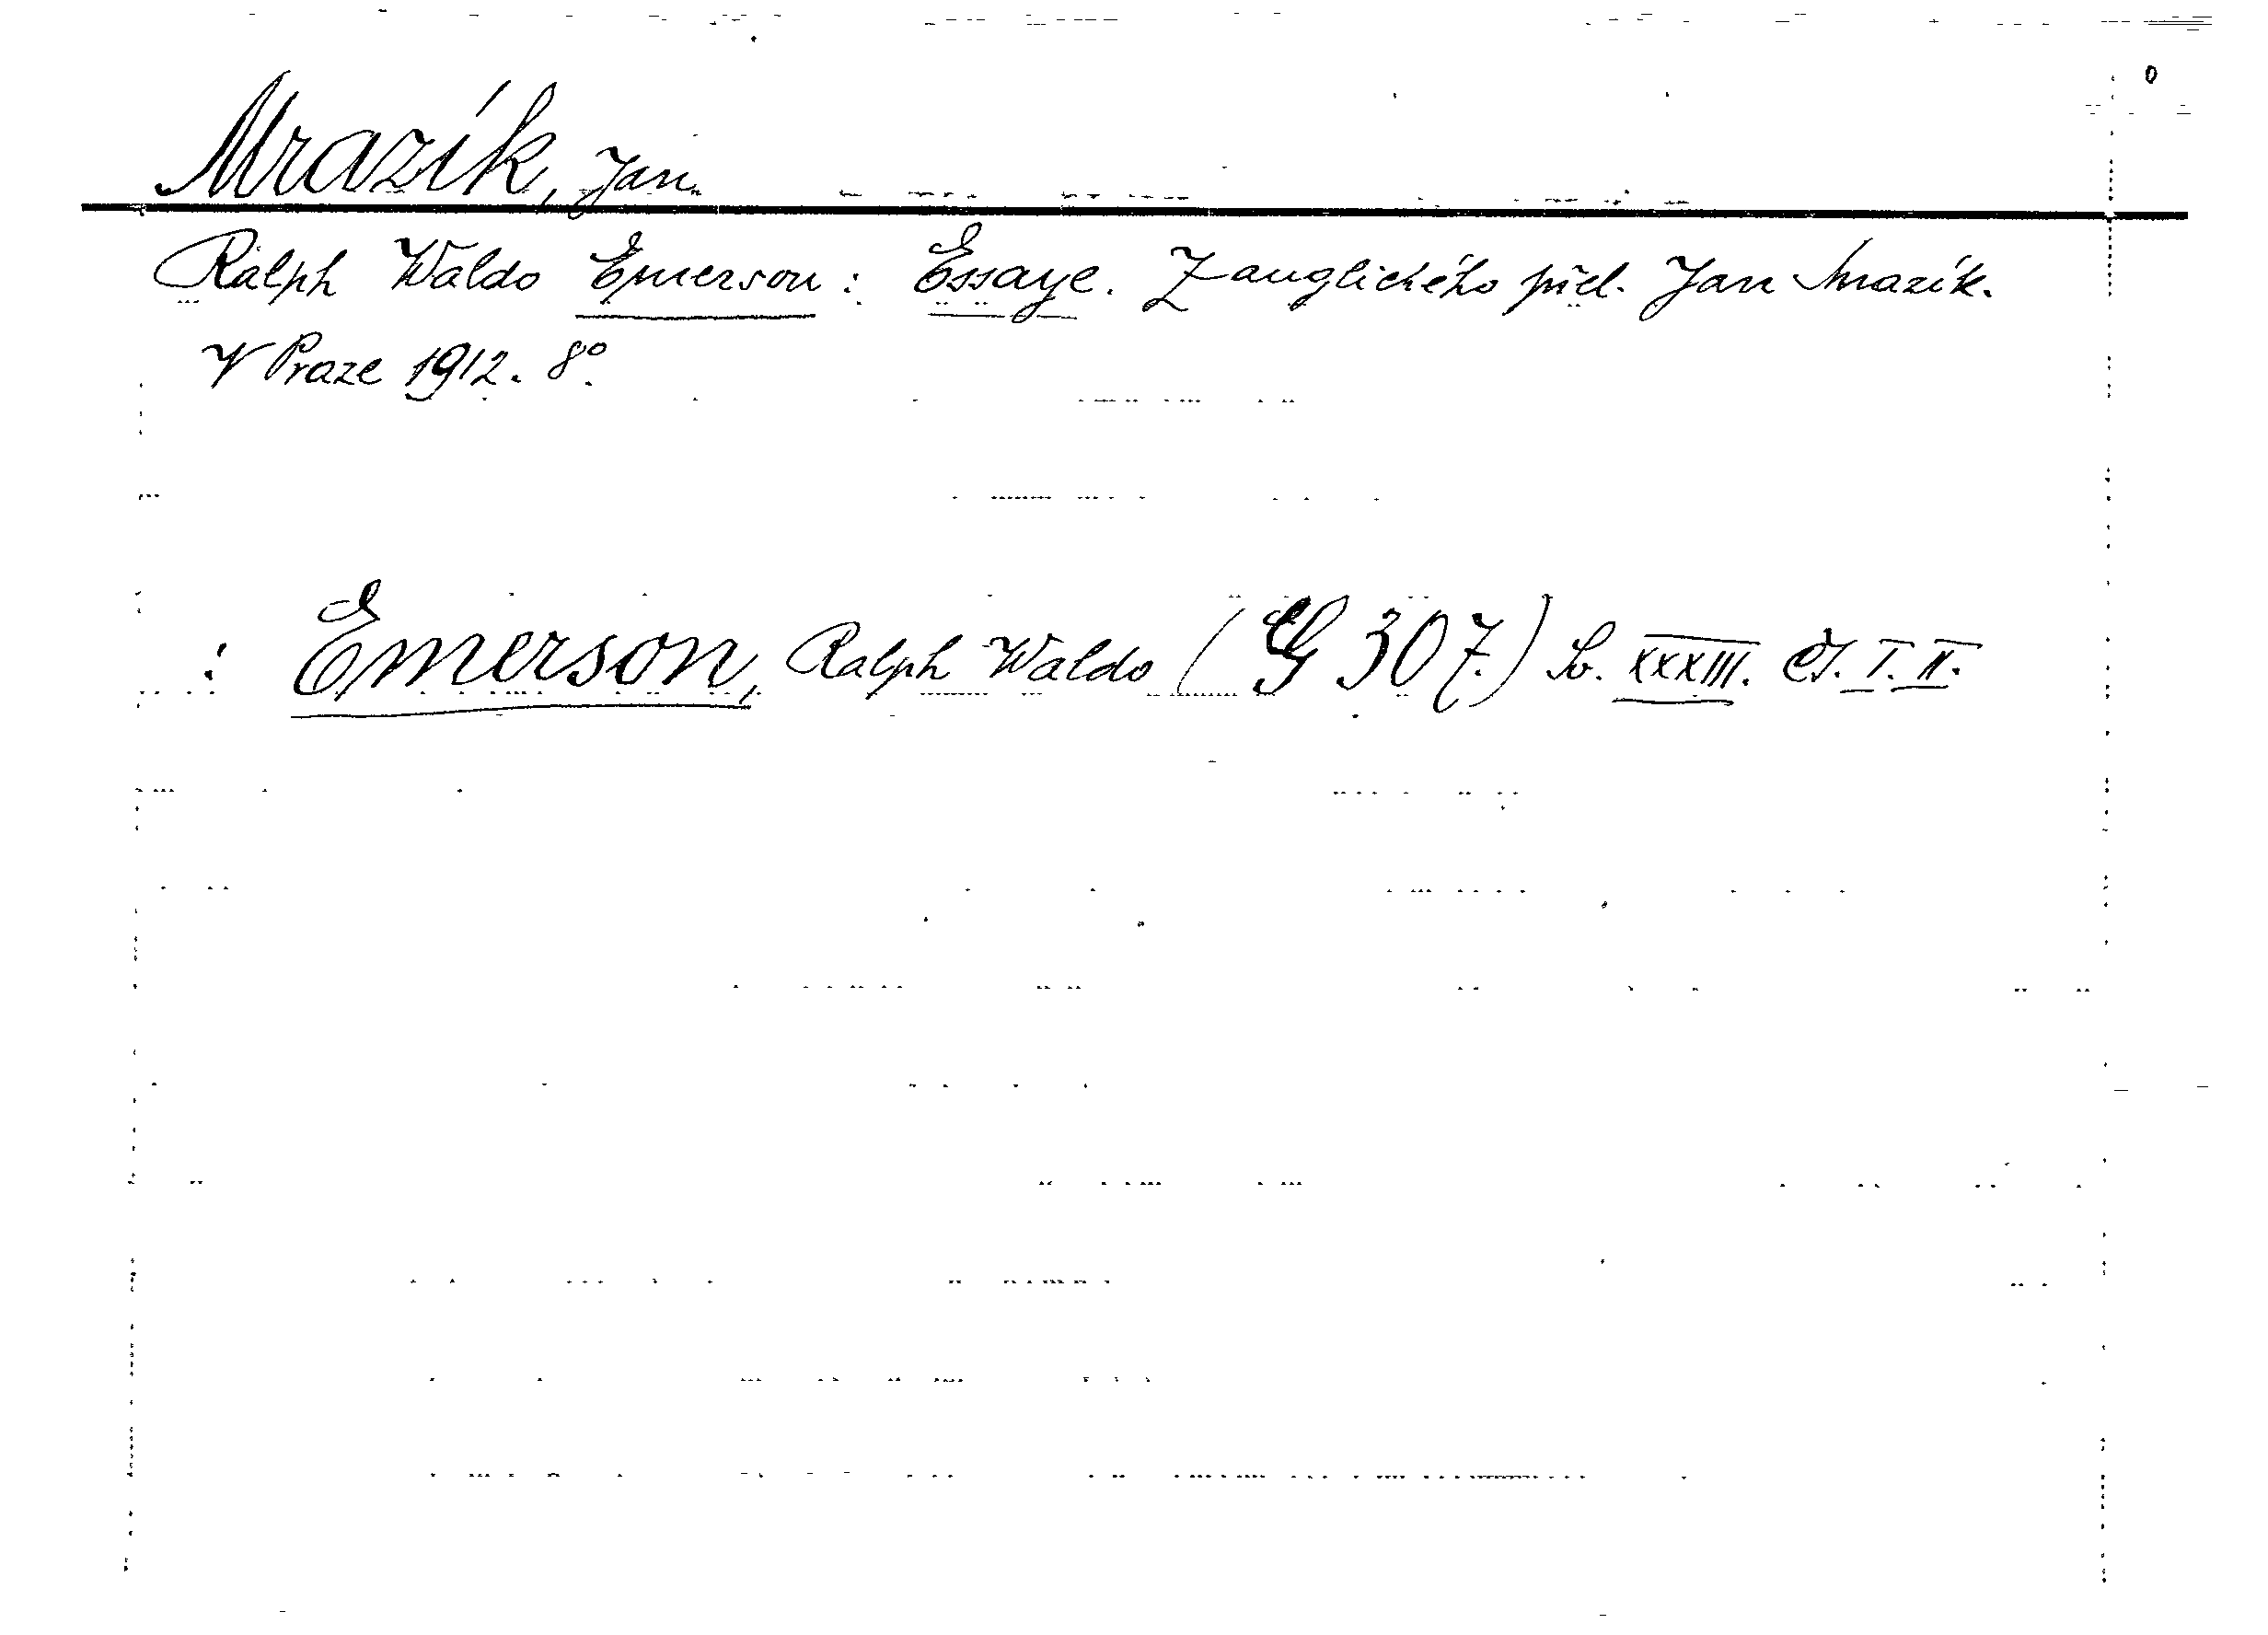 Mrazík, Jan.
Ralph Waldo Emerson: Essaye. Z anglického přel. Jan Mrazík.
V Praze 1912. 8°.
: Emerson, Ralph Waldo ( 307.) Sv. XXXIII. Čś. I. II.